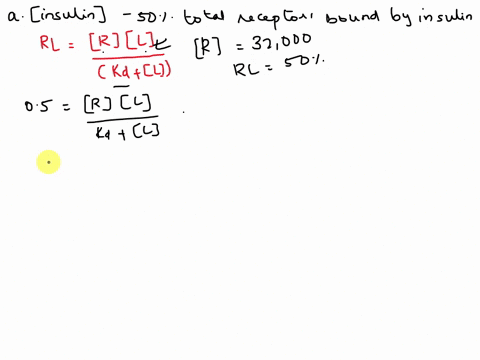 a. [insulin] - 50% total receptors bound by insulin
RL = [R][L] / (Kd + [L]) [R] = 32,000
RL = 50%
0.5 = [R][L] / Kd + [L]